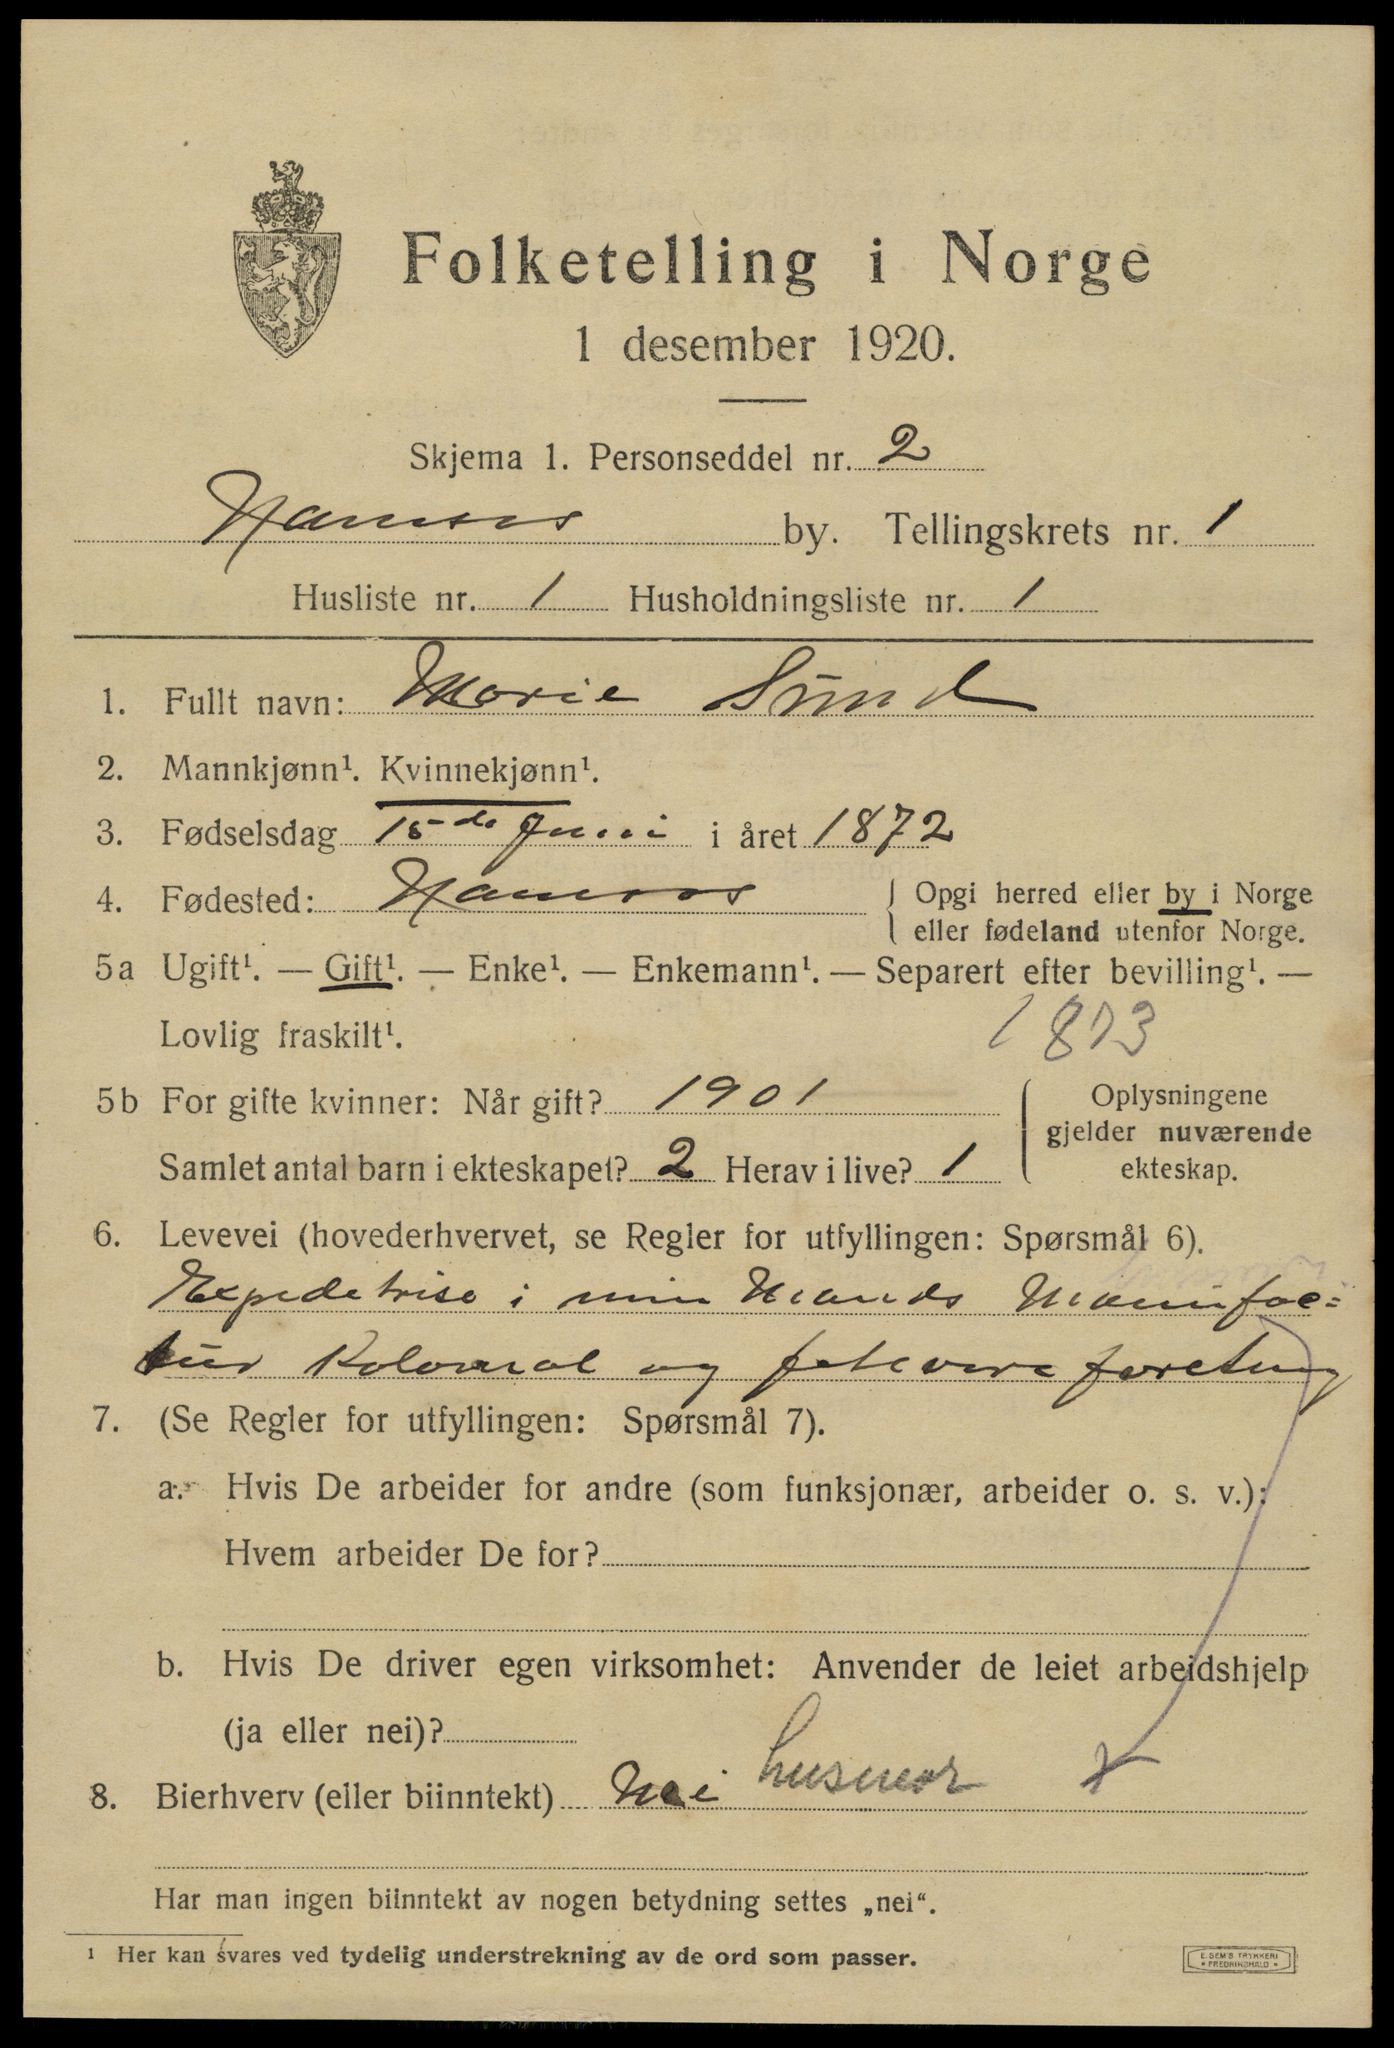 Folketelling i Norge
1 desember 1920.
Skjema 1. Personseddel nr. 2
Namsos by. Tellingskrets nr. 1
Husliste nr. 1 Husholdningsliste nr. 1
1. Fullt navn: Marie Sund
2. Mannkjønn¹. Kvinnekjønn¹.
3. Fødselsdag 15-de Juni i året 1872
4. Fødested: Namsos { Opgi herred eller by i Norge
eller fødeland utenfor Norge.
5a Ugift¹. — Gift¹. — Enke¹. — Enkemann¹. — Separert efter bevilling¹. —
Lovlig fraskilt¹.
1873
5b For gifte kvinner: Når gift? 1901 { Oplysningene
gjelder nuværende
Samlet antal barn i ekteskapet? 2 Herav i live? 1
ekteskap.
6. Levevei (hovederhvervet, se Regler for utfyllingen: Spørsmål 6).
Expeditrise i min Mands Manufac=
tur Kolonial og fetevareforetning
7. (Se Regler for utfyllingen: Spørsmål 7).
a. Hvis De arbeider for andre (som funksjonær, arbeider o. s. v.):
Hvem arbeider De for?
b. Hvis De driver egen virksomhet: Anvender de leiet arbeidshjelp
(ja eller nei)?
husmor x
8. Bierhverv (eller biinntekt) Nei
Har man ingen biinntekt av nogen betydning settes „nei“.
¹ Her kan svares ved tydelig understrekning av de ord som passer.
E. SEM'S TRYKKERI
* FREDRIKSHALD *